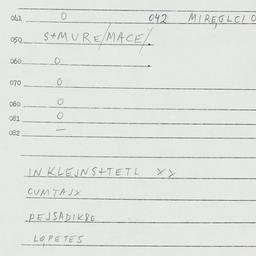 041 0 042 MIREGLCI O
050 S+MURE/MACE/
060 0
070 0
080 0
081 0
082 —
INKLEJNS+TETL XX
CUMTAJX
PEJSADIK80
LOPETES